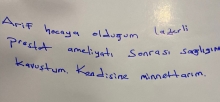 Arif hocaya olduğum lazerli
prostat ameliyatı sonrası sağlığıma
kavuştum. Kendisine minnettarım.